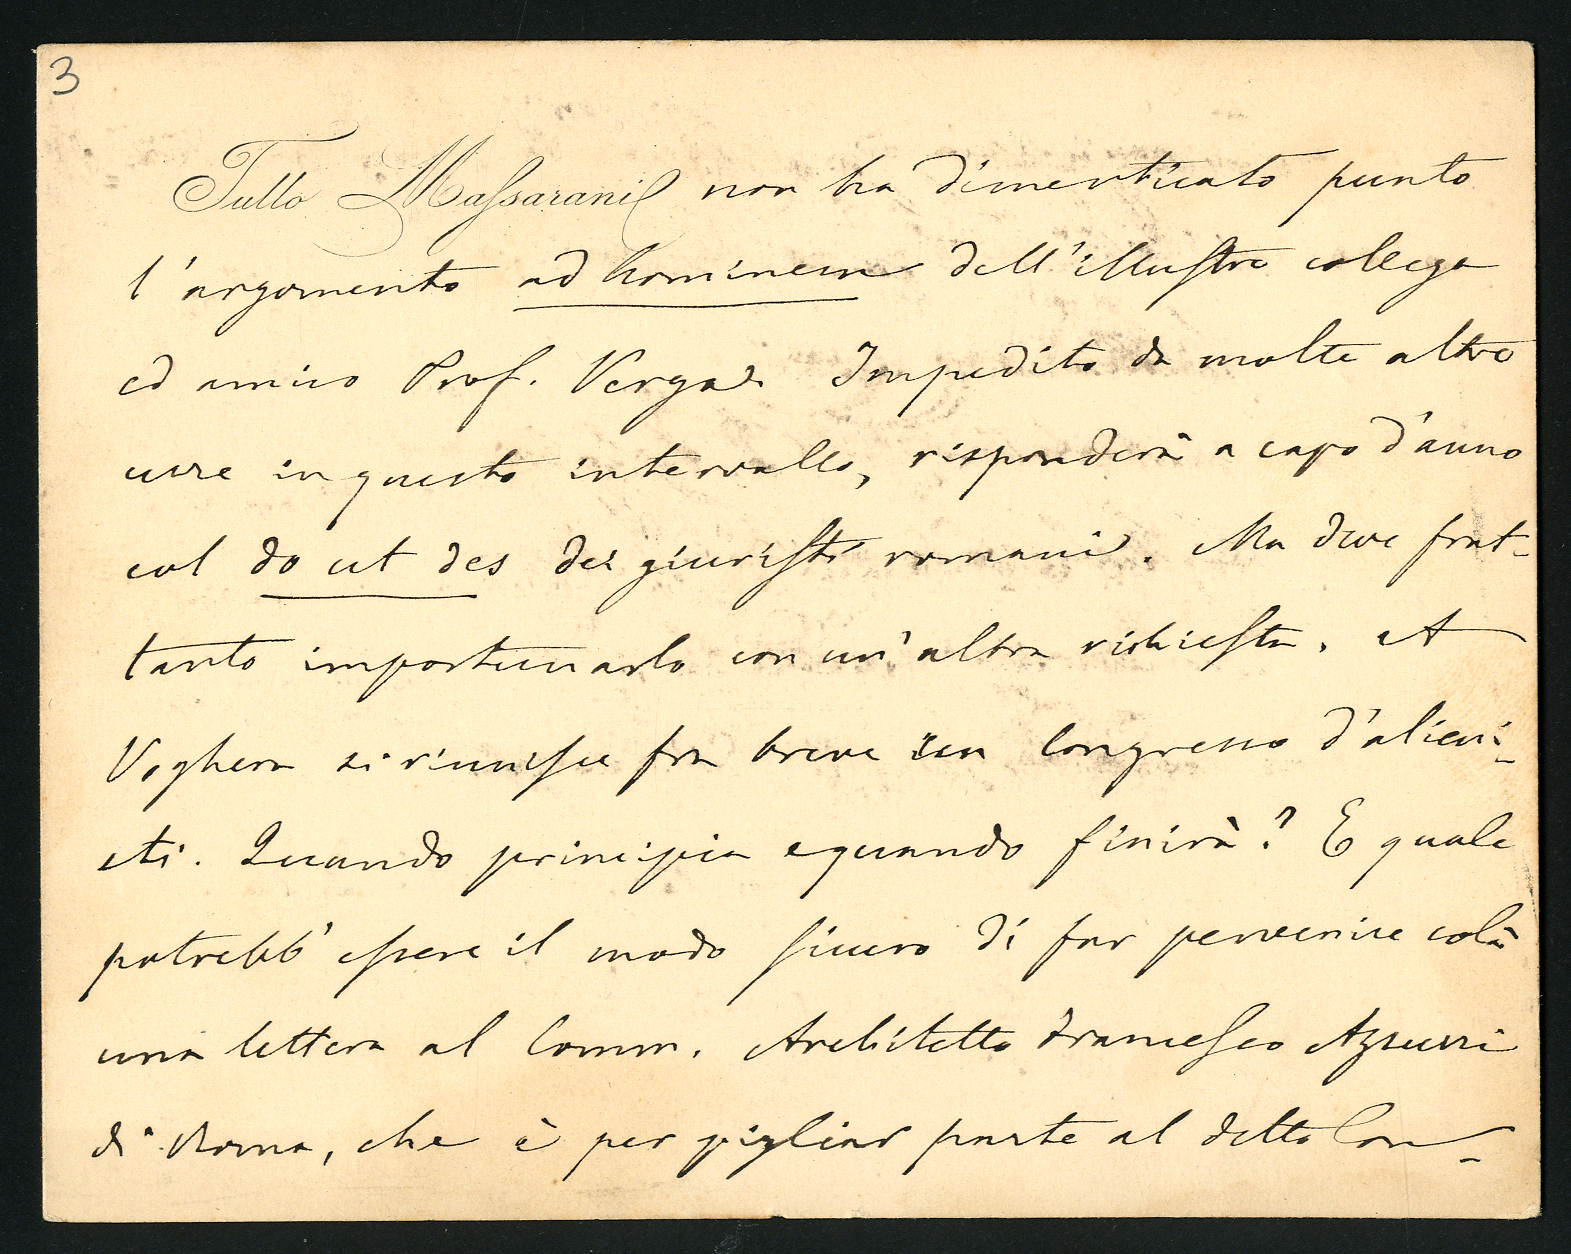 3
Tullo Massarani non ha dimenticato punto
l'argomento ad hominem dell'illustre collega
ed amico Prof. Verga. Impedito da molte altre
cure in questo intervallo, risponderà a capo d'anno
col do ut des dei giuristi romani. Ma deve frat-
tanto importunarlo con un'altra richiesta. A
Voghera si riunisce fra breve un Congresso d'alieni-
sti. Quando principia e quando finirà? E quale
potrebb'essere il modo sicuro di far pervenire colà
una lettera al Comm. Architetto Francesco Azzurri
di Roma, che è per pigliar parte al detto Con-